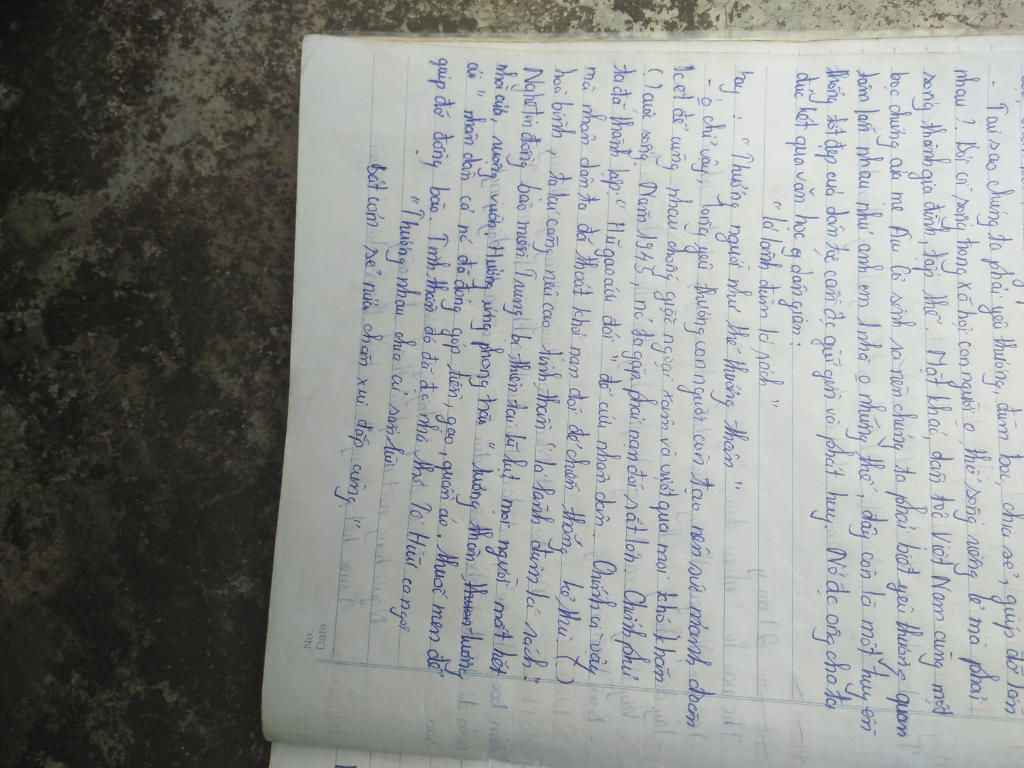 - Tại sao chúng ta phải yêu thương, đùm bọc, chia sẻ, giúp đỡ lẫn
nhau? Bởi vì sống trong xã hội con người o thể sống riêng lẻ mà phải
sống thành gia đình, tập thể. Mặt khác, dân tộc Việt Nam cùng một
bọc chứng của mẹ Âu Cơ sinh ra nên chúng ta phải biết yêu thương quan
tâm lẫn nhau như anh em 1 nhà o những thế, đây còn là một truyền
thống tốt đẹp của dân tộc cần đc giữ gìn và phát huy. Nó đc ông cha ta
đúc kết qua văn học dân gian:
"Lá lành đùm lá rách"
hay: "Thương người như thể thương thân"
- o chỉ vậy, lòng yêu thương con người còn tạo nên sức mạnh đoàn
kết để cùng nhau chống giặc ngoại xâm và vượt qua mọi khó khăn
() cuộc sống. Năm 1945, nc ta gặp phải nạn đói rất lớn. Chính phủ
ta đã thành lập "Hũ gạo cứu đói" để cứu nhân dân. Chính vì vậy
mà nhân dân ta đã thoát khỏi nạn đói để chiến thắng kẻ thù ()
hoà bình, ta lại càng nêu cao tinh thần "lá lành đùm lá rách."
Nghe tin đồng bào miền Trung bị thiên tai lũ lụt, mọi người mất hết
nhà cửa, ruộng vườn. Hưởng ứng phong trào "tương thân tương
ái" nhân dân cả nc đã đóng góp tiền, gạo, quần áo, thuốc men để
giúp đỡ đồng bào. Tinh thần đó đã đc nhà thơ Tố Hữu ca ngợi
"Thương nhau chia củ sắn lùi
Bát cơm sẻ nửa chăn xui đắp cùng."
No.
Date